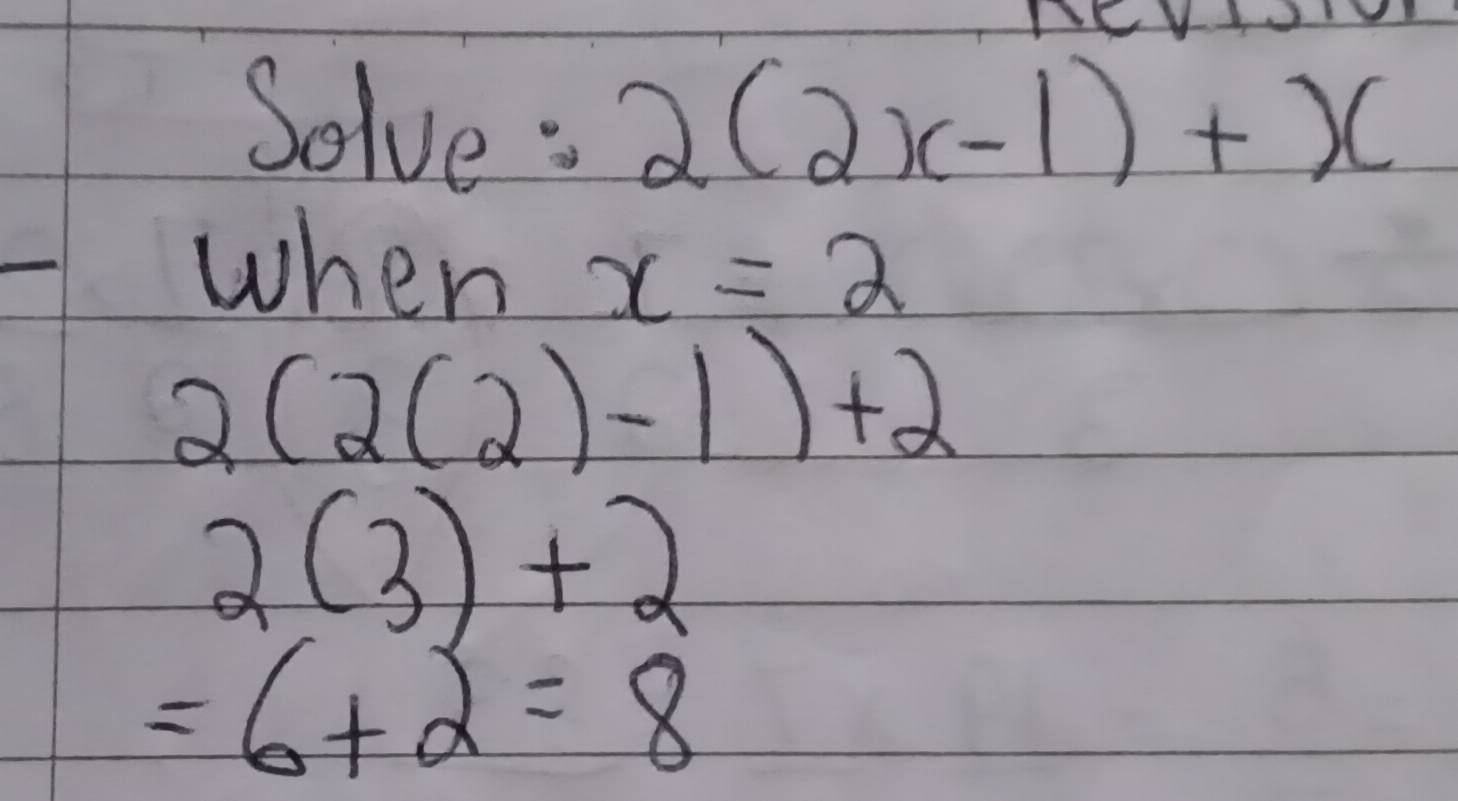 Revision
Solve: 2(2x-1) + x
when x = 2
2(2(2)-1)+2
2(3) + 2
= 6+2 = 8